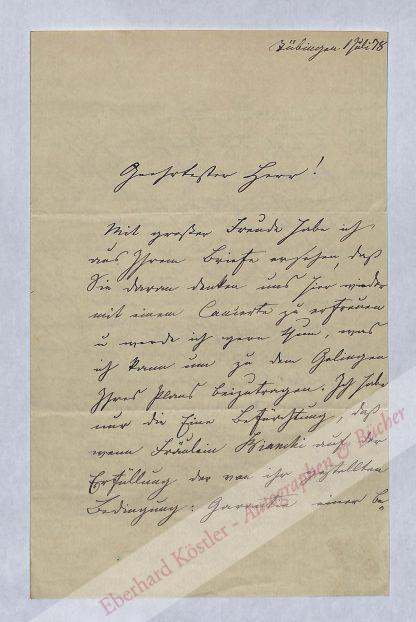 Tübingen 1 Juli 78
Geehrtester Herr!
Mit großer Freude habe ich
aus Ihrem Briefe ersehen, daß
Sie daran denken uns hier wieder
mit einem Concerte zu erfreuen
u werde ich gern thun, was
ich kann um zu dem Gelingen
Ihres Plans beizutragen. Ich habe
nur die Eine Befürchtung, daß
wenn Fräulein Bianchi auf der
Erfüllung der von ihr gestellten
Bedingung: Garantie einer be„
Eberhard Köstler - Autographen & Bücher